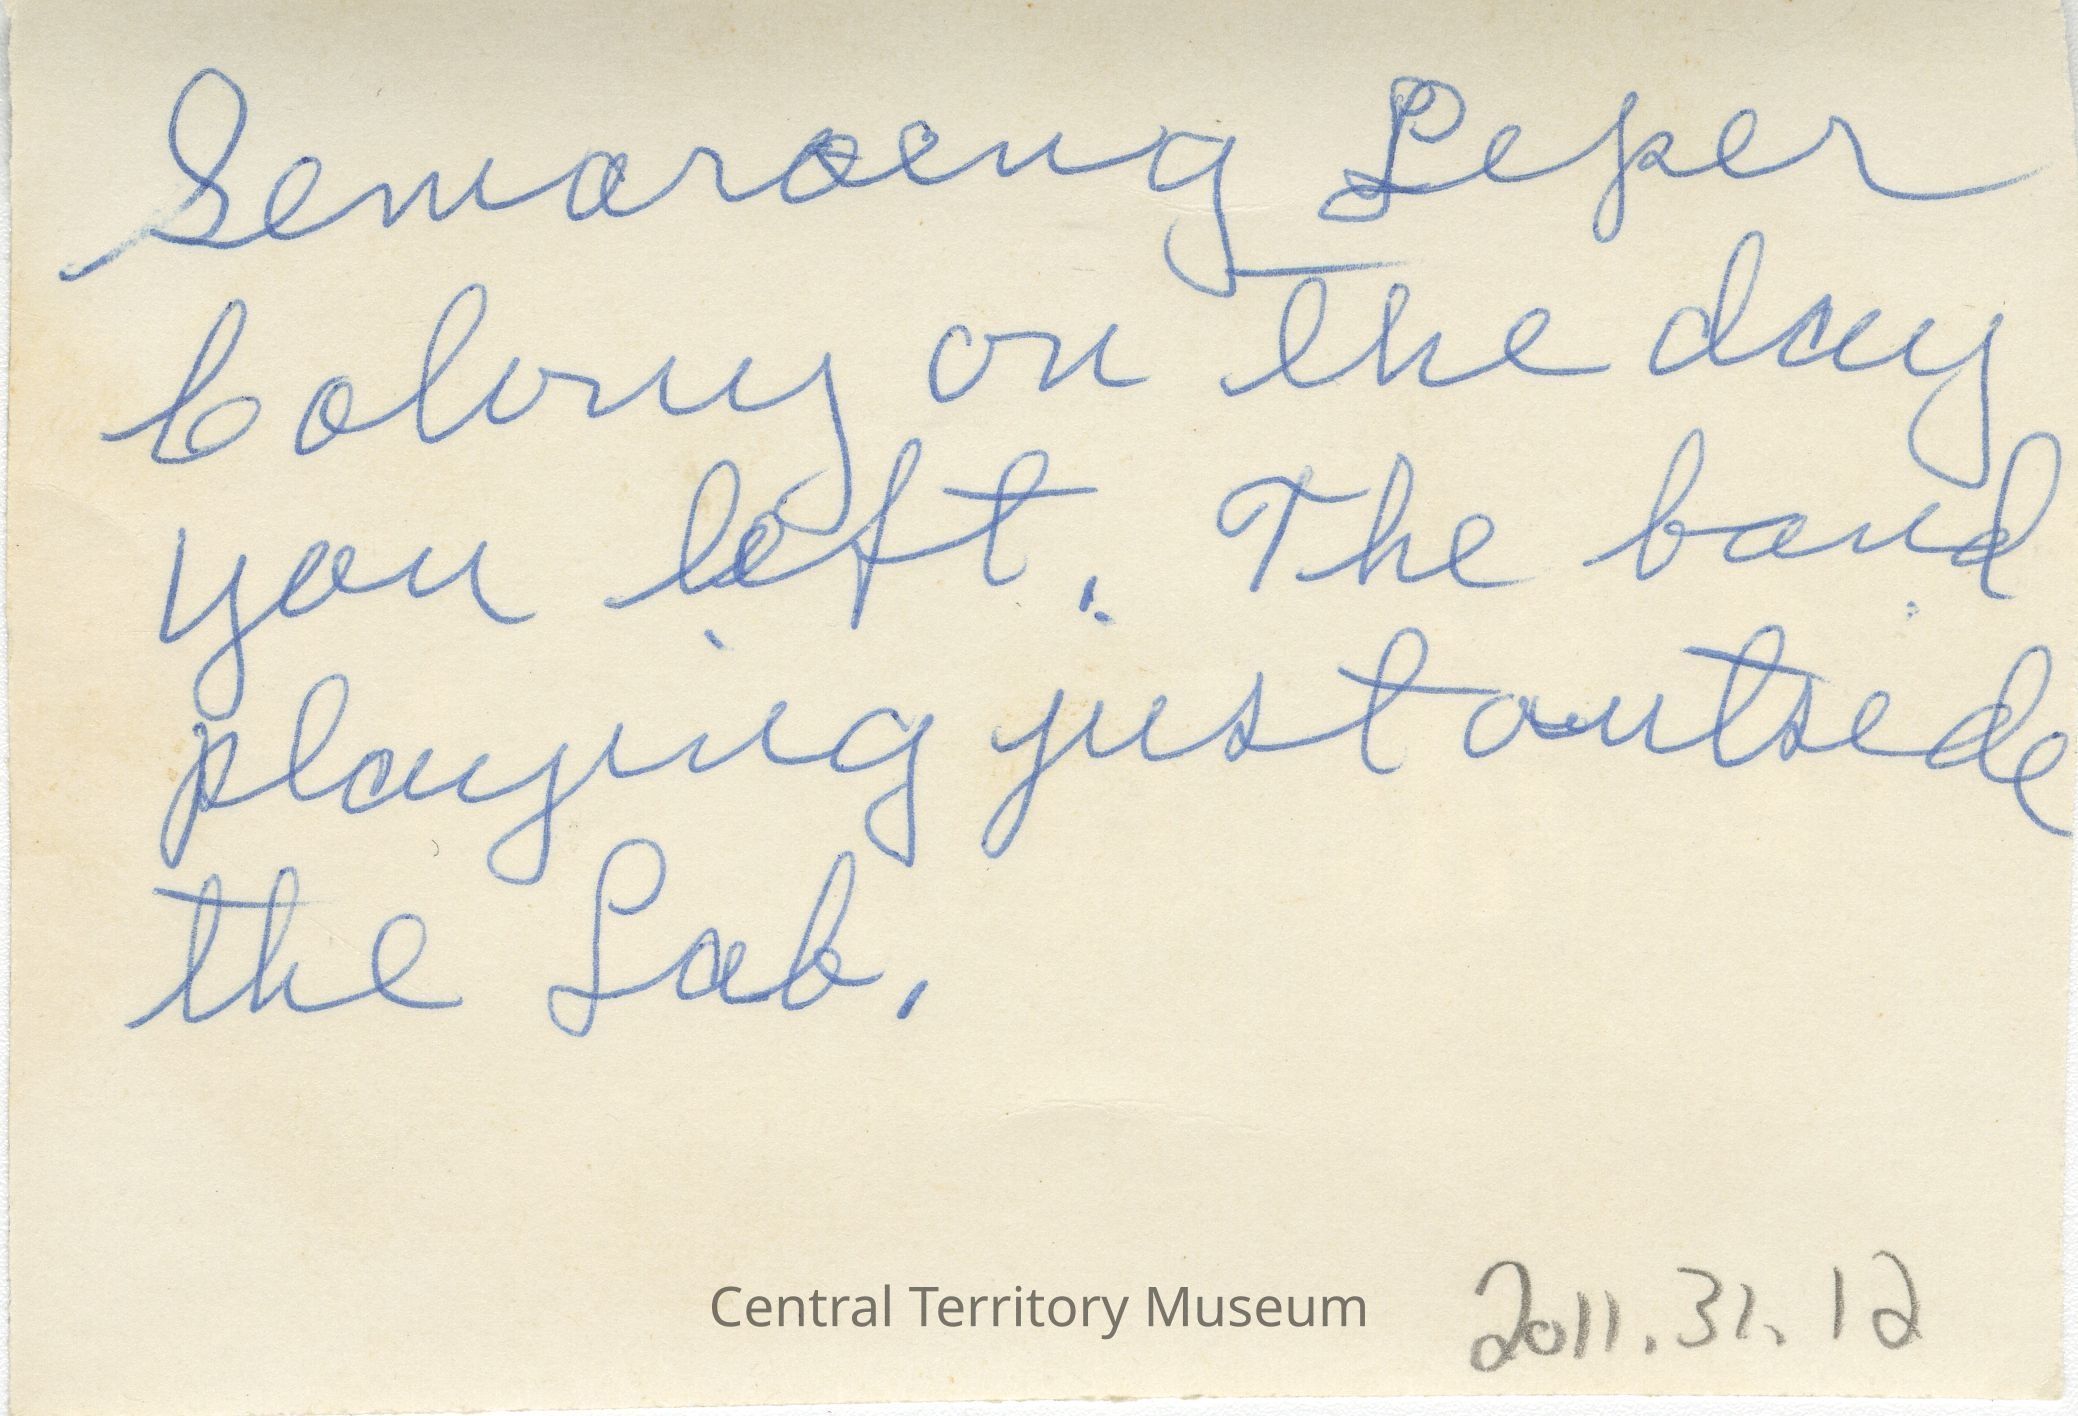 Semaroeng Leper
Colony on the day
you left. The band
playing just outside
the Lab.
Central Territory Museum
2011.31.12